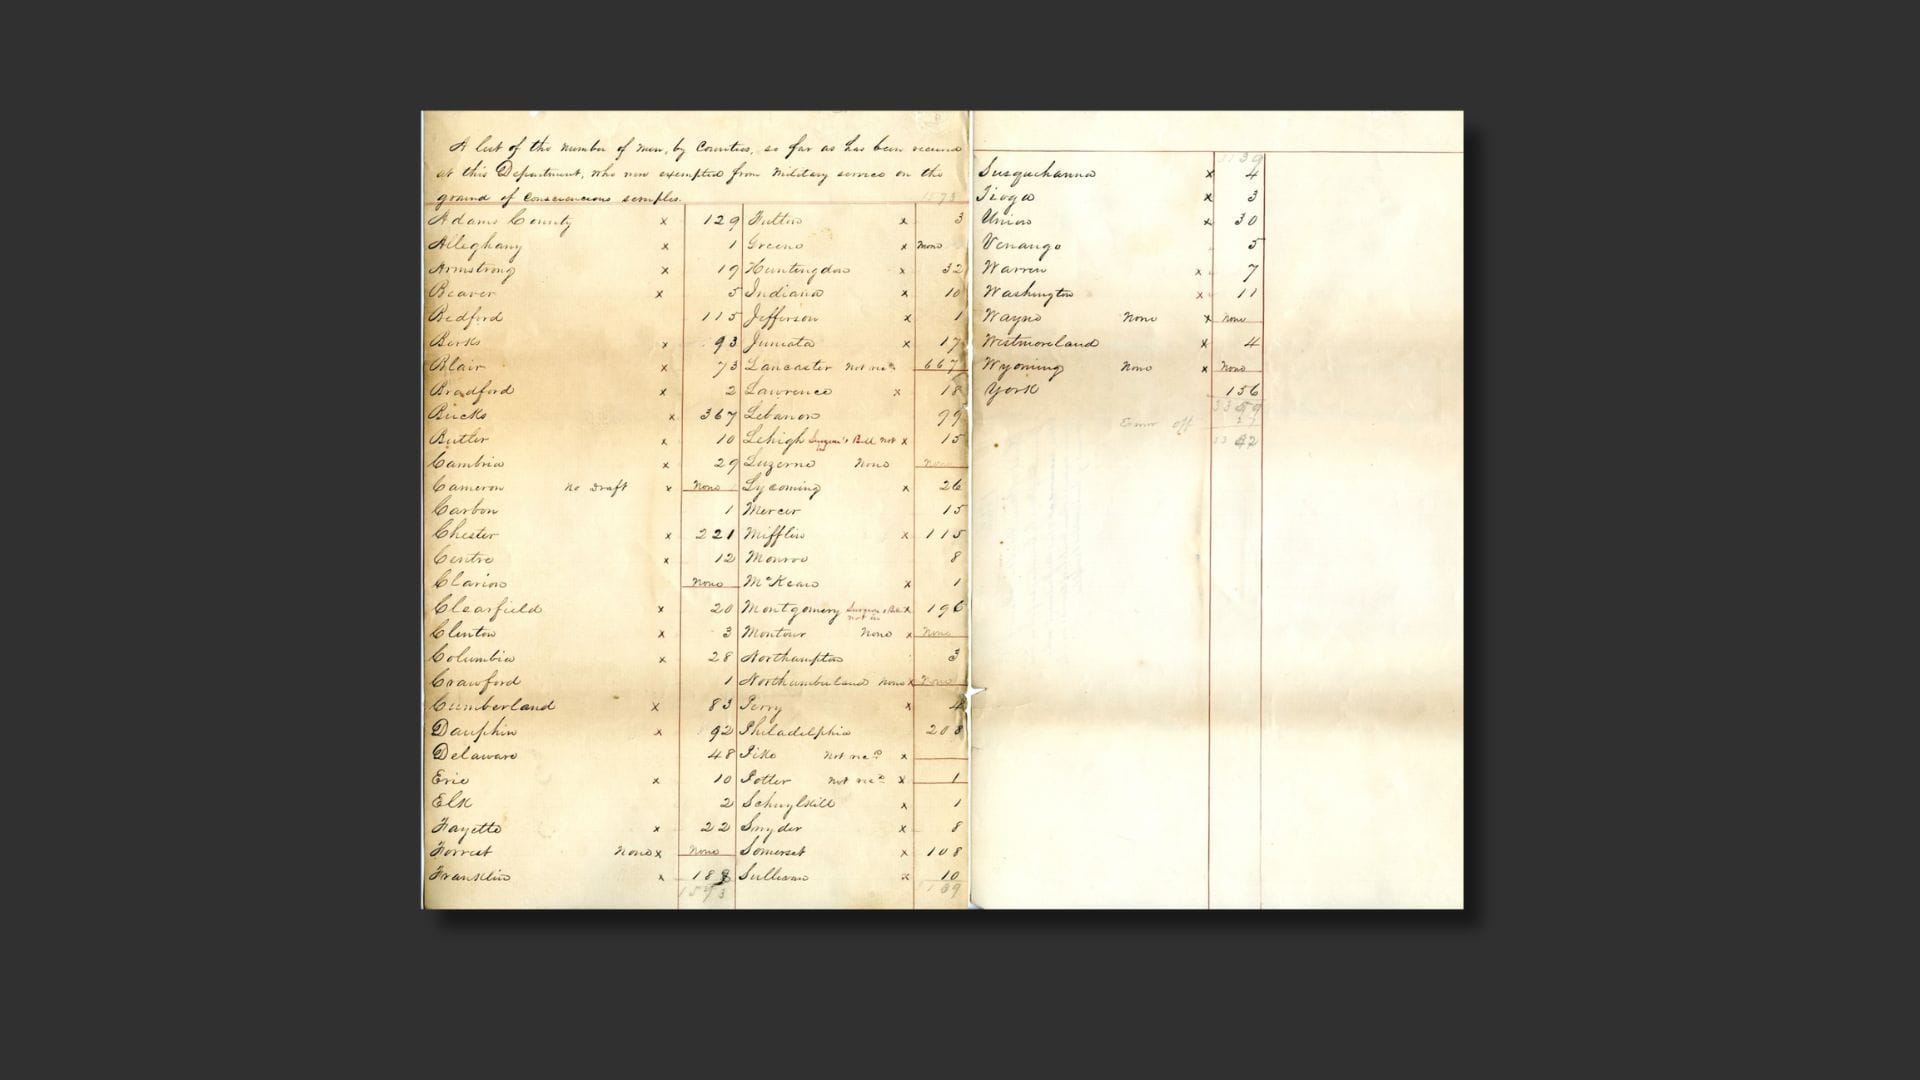 A list of the number of men, by Counties, so far as has been received
at this Department, who were exempted from Military service on the
ground of conscientious scruples.
Adams County x 129
Alleghany x 1
Armstrong x 19
Beaver x 5
Bedford 115
Berks x 93
Blair x 73
Bradford x 2
Bucks x 367
Butler x 10
Cambria x 29
Cameron no draft x None
Carbon 1
Chester x 221
Centre x 12
Clarion None
Clearfield x 20
Clinton x 3
Columbia x 28
Crawford 1
Cumberland x 83
Dauphin x 92
Delaware 48
Erie x 10
Elk 2
Fayette x 22
Forrest None x None
Franklin x
1573
Fulton x 3
Greene x None
Huntingdon x 32
Indiana x 10
Jefferson x 1
Juniata x 17
Lancaster Not rec 667
Lawrence x 18
Lebanon 99
Lehigh Surgeon's Bill not x 15
Luzerne None None
Lycoming x 26
Mercer 15
Mifflin x 115
Monroe 8
McKean x 1
Montgomery Surgeon's Bill x 196
not in
Montour None x None
Northampton 3
Northumberland None x None
Perry x 4
Philadelphia 208
Pike Not rec'd x
Potter Not rec'd x 1
Schuylkill x 1
Snyder x 8
Somerset x 108
Sullivan x 10
Susquehanna x 4
Tioga x 3
Union x 30
Venango 5
Warren x 7
Washington x 11
Wayne None x None
Westmoreland x 4
Wyoming None x None
York 156
Error off